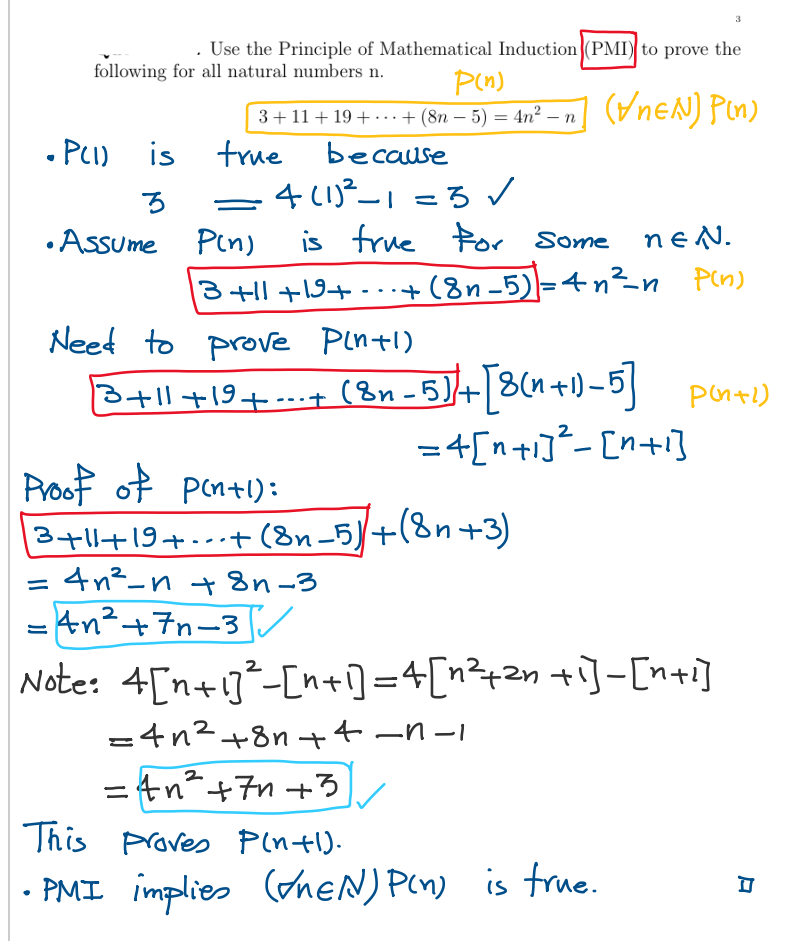 3
. Use the Principle of Mathematical Induction (PMI) to prove the
following for all natural numbers n.
P(n)
3 + 11 + 19 + ··· + (8n − 5) = 4n² − n (∀n∈N) P(n)
• P(1) is true because
3 = 4(1)²−1 = 3 ✓
• Assume P(n) is true for some n∈N.
3+11+19+ ···+(8n−5)=4n²−n P(n)
Need to prove P(n+1)
3+11+19+···+(8n−5)+[8(n+1)−5] P(n+1)
=4[n+1]²−[n+1]
Proof of P(n+1):
3+11+19+···+(8n−5)+(8n+3)
= 4n²−n + 8n−3
= 4n²+7n−3 ✓
Note: 4[n+1]²−[n+1]=4[n²+2n+1]−[n+1]
=4n²+8n+4−n−1
= 4n²+7n+3 ✓
This proves P(n+1).
• PMI implies (∀n∈N) P(n) is true. □